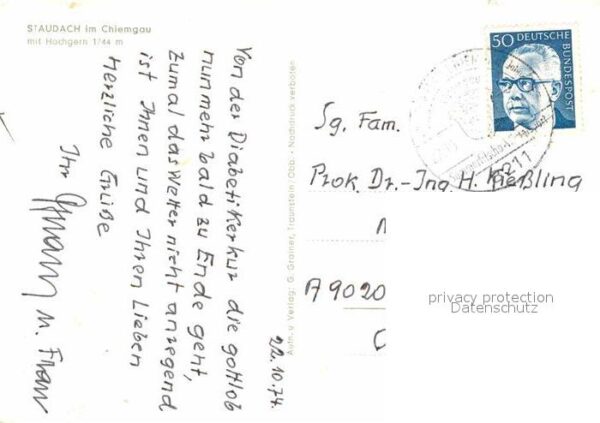 STAUDACH im Chiemgau
mit Hochgern 1744 m
Von der Diabetikerkur die gottlob
nunmehr bald zu Ende geht,
zumal das Wetter nicht anregend
ist Ihnen und Ihren Lieben
herzliche Grüße
Ihr
u. Frau
22.10.74.
Aufn. u. Verlag: G. Grainer, Traunstein Obb. - Nachdruck verboten
50 DEUTSCHE
BUNDESPOST
8211
Sg. Fam.
Prok. Dr.-Ing H. Kießling
A 9020
privacy protection
Datenschutz